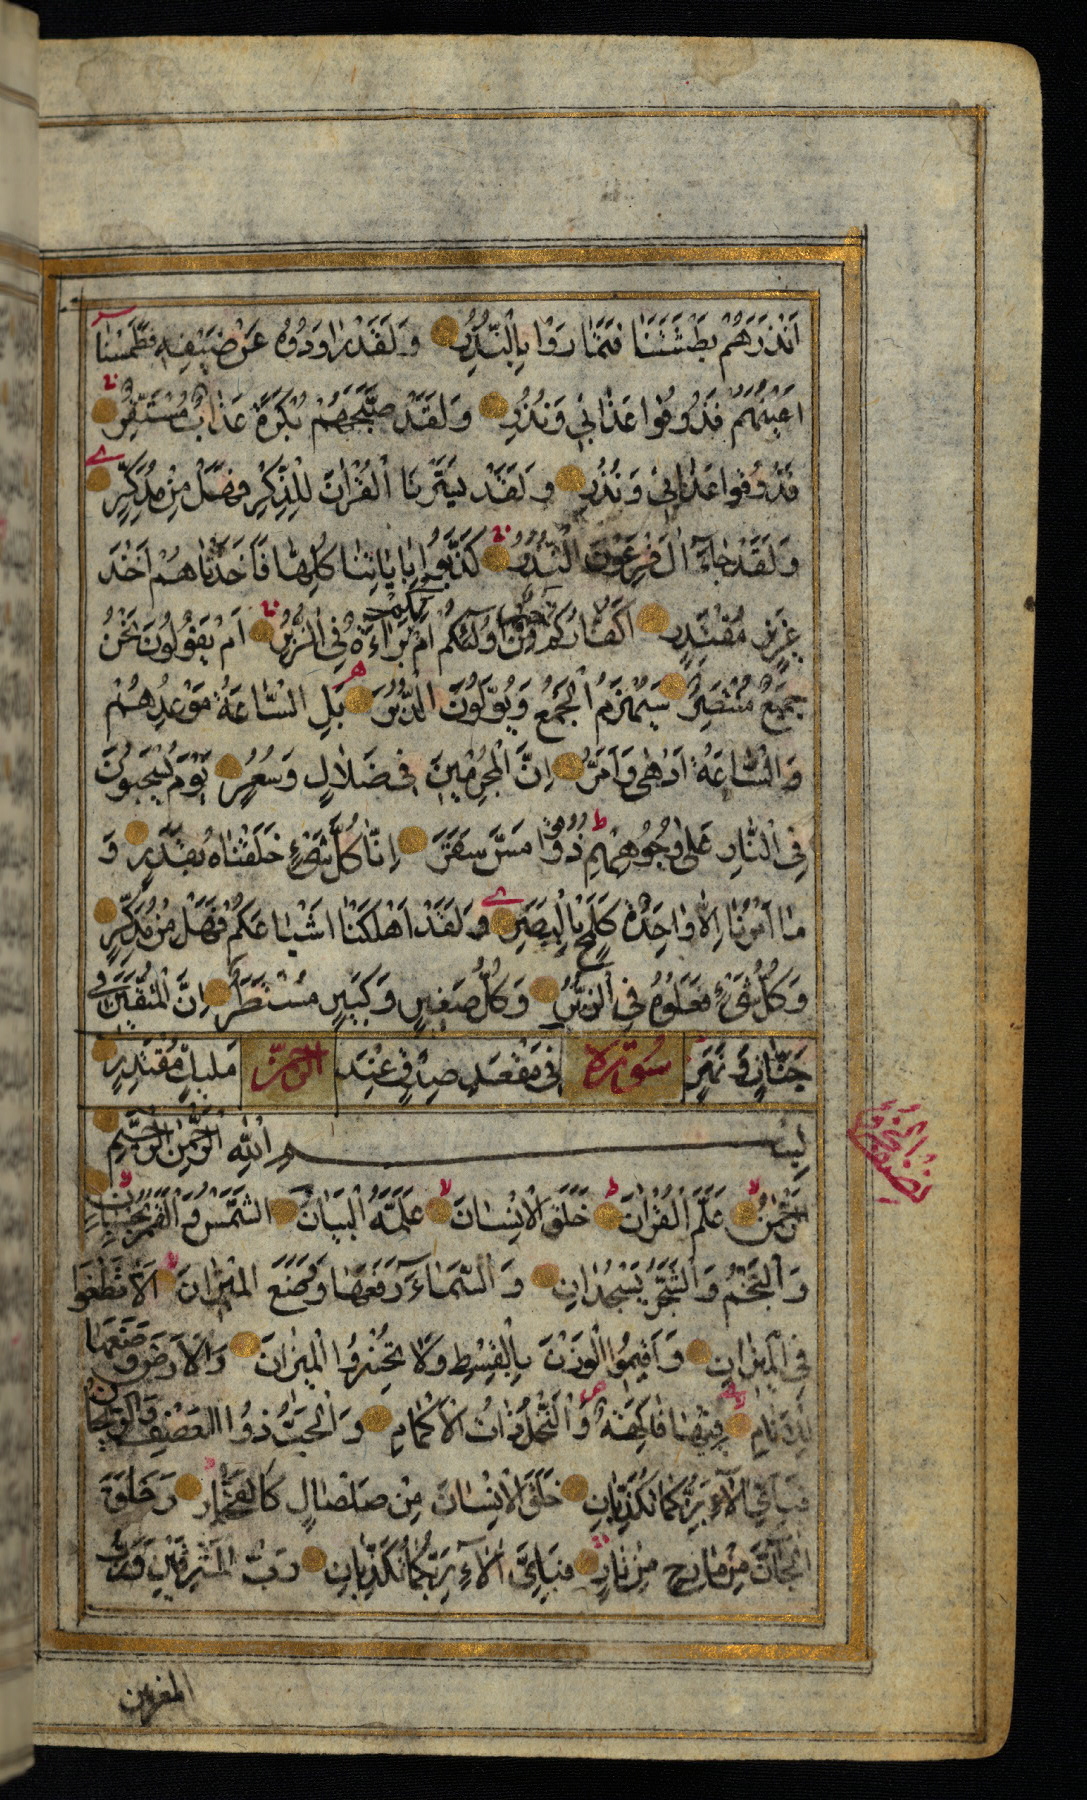 اَنْذَرَهُمْ بَطْشَتَنَا فَتَمَارَوْا بِالنُّذُرِ وَلَقَدْ رَاوَدُوهُ عَنْ ضَيْفِهِ فَطَمَسْنَا
اَعْيُنَهُمْ فَذُوقُوا عَذَابِي وَنُذُرِ وَلَقَدْ صَبَّحَهُمْ بُكْرَةً عَذَابٌ مُسْتَقِرٌّ
فَذُوقُوا عَذَابِي وَنُذُرِ وَلَقَدْ يَسَّرْنَا الْقُرْآنَ لِلذِّكْرِ فَهَلْ مِنْ مُدَّكِرٍ
وَلَقَدْ جَاءَ آلَ فِرْعَوْنَ النُّذُرُ كَذَّبُوا بِآيَاتِنَا كُلِّهَا فَاَخَذْنَاهُمْ اَخْذَ
عَزِيزٍ مُقْتَدِرٍ اَكُفَّارُكُمْ خَيْرٌ مِنْ اُولَئِكُمْ اَمْ لَكُمْ بَرَاءَةٌ فِي الزُّبُرِ اَمْ يَقُولُونَ نَحْنُ
جَمِيعٌ مُنْتَصِرٌ سَيُهْزَمُ الْجَمْعُ وَيُوَلُّونَ الدُّبُرَ بَلِ السَّاعَةُ مَوْعِدُهُمْ
وَالسَّاعَةُ اَدْهَى وَاَمَرُّ اِنَّ الْمُجْرِمِينَ فِي ضَلَالٍ وَسُعُرٍ يَوْمَ يُسْحَبُونَ
فِي النَّارِ عَلَى وُجُوهِهِمْ ذُوقُوا مَسَّ سَقَرَ اِنَّا كُلَّ شَيْءٍ خَلَقْنَاهُ بِقَدَرٍ وَ
مَا اَمْرُنَا اِلَّا وَاحِدَةٌ كَلَمْحٍ بِالْبَصَرِ وَلَقَدْ اَهْلَكْنَا اَشْيَاعَكُمْ فَهَلْ مِنْ مُدَّكِرٍ
وَكُلُّ شَيْءٍ فَعَلُوهُ فِي الزُّبُرِ وَكُلُّ صَغِيرٍ وَكَبِيرٍ مُسْتَطَرٌ اِنَّ الْمُتَّقِينَ فِي
جَنَّاتٍ وَنَهَرٍ سُورَة فِي مَقْعَدِ صِدْقٍ عِنْدَ الرحمن مَلِيكٍ مُقْتَدِرٍ
بِسْمِ اللَّهِ الرَّحْمَنِ الرَّحِيمِ
الرَّحْمَنُ عَلَّمَ الْقُرْآنَ خَلَقَ الْاِنْسَانَ عَلَّمَهُ الْبَيَانَ الشَّمْسُ وَالْقَمَرُ بِحُسْبَانٍ
وَالنَّجْمُ وَالشَّجَرُ يَسْجُدَانِ وَالسَّمَاءَ رَفَعَهَا وَوَضَعَ الْمِيزَانَ اَلَّا تَطْغَوْا
فِي الْمِيزَانِ وَاَقِيمُوا الْوَزْنَ بِالْقِسْطِ وَلَا تُخْسِرُوا الْمِيزَانَ وَالْاَرْضَ وَضَعَهَا
لِلْاَنَامِ فِيهَا فَاكِهَةٌ وَالنَّخْلُ ذَاتُ الْاَكْمَامِ وَالْحَبُّ ذُوا الْعَصْفِ وَالرَّيْحَانُ
فَبِاَيِّ آلَاءِ رَبِّكُمَا تُكَذِّبَانِ خَلَقَ الْاِنْسَانَ مِنْ صَلْصَالٍ كَالْفَخَّارِ وَخَلَقَ
الْجَانَّ مِنْ مَارِجٍ مِنْ نَارٍ فَبِاَيِّ آلَاءِ رَبِّكُمَا تُكَذِّبَانِ رَبُّ الْمَشْرِقَيْنِ وَرَبُّ
المغربين